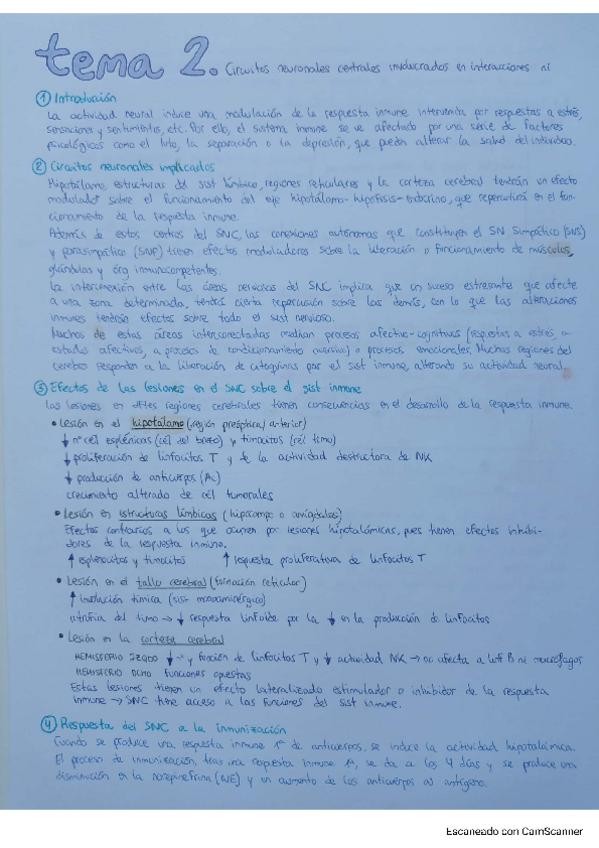 tema 2. Circuitos neuronales centrales involucrados en interacciones ni
① Introducción
La actividad neural induce una modulación de la respuesta inmune intervenida por respuestas a estrés,
sensaciones y sentimientos, etc. Por ello, el sistema inmune se ve afectado por una serie de factores
psicológicos como el luto, la separación o la depresión, que pueden alterar la salud del individuo.
② Circuitos neuronales implicados
Hipotálamo, estructuras del sist límbico, regiones reticulares y la corteza cerebral tendrán un efecto
modulador sobre el funcionamiento del eje hipotálamo-hipófisis-endocrino, que repercutirá en el fun-
cionamiento de la respuesta inmune.
Además de estos centros del SNC, las conexiones autónomas que constituyen el SN Simpático (SNS)
y parasimpático (SNP) tienen efectos moduladores sobre la liberación o funcionamiento de músculos,
glándulas y órg inmunocompetentes.
La interconexión entre las áreas nerviosas del SNC implica que un suceso estresante que afecte
a una zona determinada, tendrá cierta repercusión sobre las demás, con lo que las alteraciones
inmunes tendrán efectos sobre todo el sist nervioso.
Muchos de estas áreas interconectadas median procesos afectivo-cognitivos (respuestas a estrés, a
estados afectivos, a procesos de condicionamiento aversivo) o procesos emocionales. Muchas regiones del
cerebro responden a la liberación de citoquinas por el sist inmune, alterando su actividad neural.
③ Efectos de las lesiones en el SNC sobre el sist inmune
Las lesiones en regiones cerebrales tienen consecuencias en el desarrollo de la respuesta inmune.
• Lesión en el hipotálamo (región preóptica/anterior)
↓ nº cél esplénicas (cél del bazo) y timocitos (cél timo)
↓ proliferación de linfocitos T y de la actividad destructora de NK
↓ producción de anticuerpos (Ac)
crecimiento alterado de cél tumorales
• Lesión en estructuras límbicas (hipocampo o amígdalas)
Efectos contrarios a los que ocurren por lesiones hipotalámicas, pues tienen efectos inhibi-
dores de la respuesta inmune.
↑ esplenocitos y timocitos ↑ respuesta proliferativa de linfocitos T
• Lesión en el tallo cerebral (formación reticular)
↑ involución tímica (sist monoaminérgico)
atrofia del timo → ↓ respuesta linfoide por la ↓ en la producción de linfocitos
• Lesión en la corteza cerebral
HEMISFERIO IZQDO ↓ nº y función de linfocitos T y ↓ actividad NK → no afecta a linf B ni macrófagos
HEMISFERIO DCHO funciones opuestas
Estas lesiones tienen un efecto lateralizado estimulador o inhibidor de la respuesta
inmune → SNC tiene acceso a las funciones del sist inmune.
④ Respuesta del SNC a la inmunización
Cuando se produce una respuesta inmune 1ª de anticuerpos, se induce la actividad hipotalámica.
El proceso de inmunización, tras una respuesta inmune 1ª, se da a los 4 días y se produce una
disminución en la norepinefrina (NE) y un aumento de los anticuerpos al antígeno.
Escaneado con CamScanner